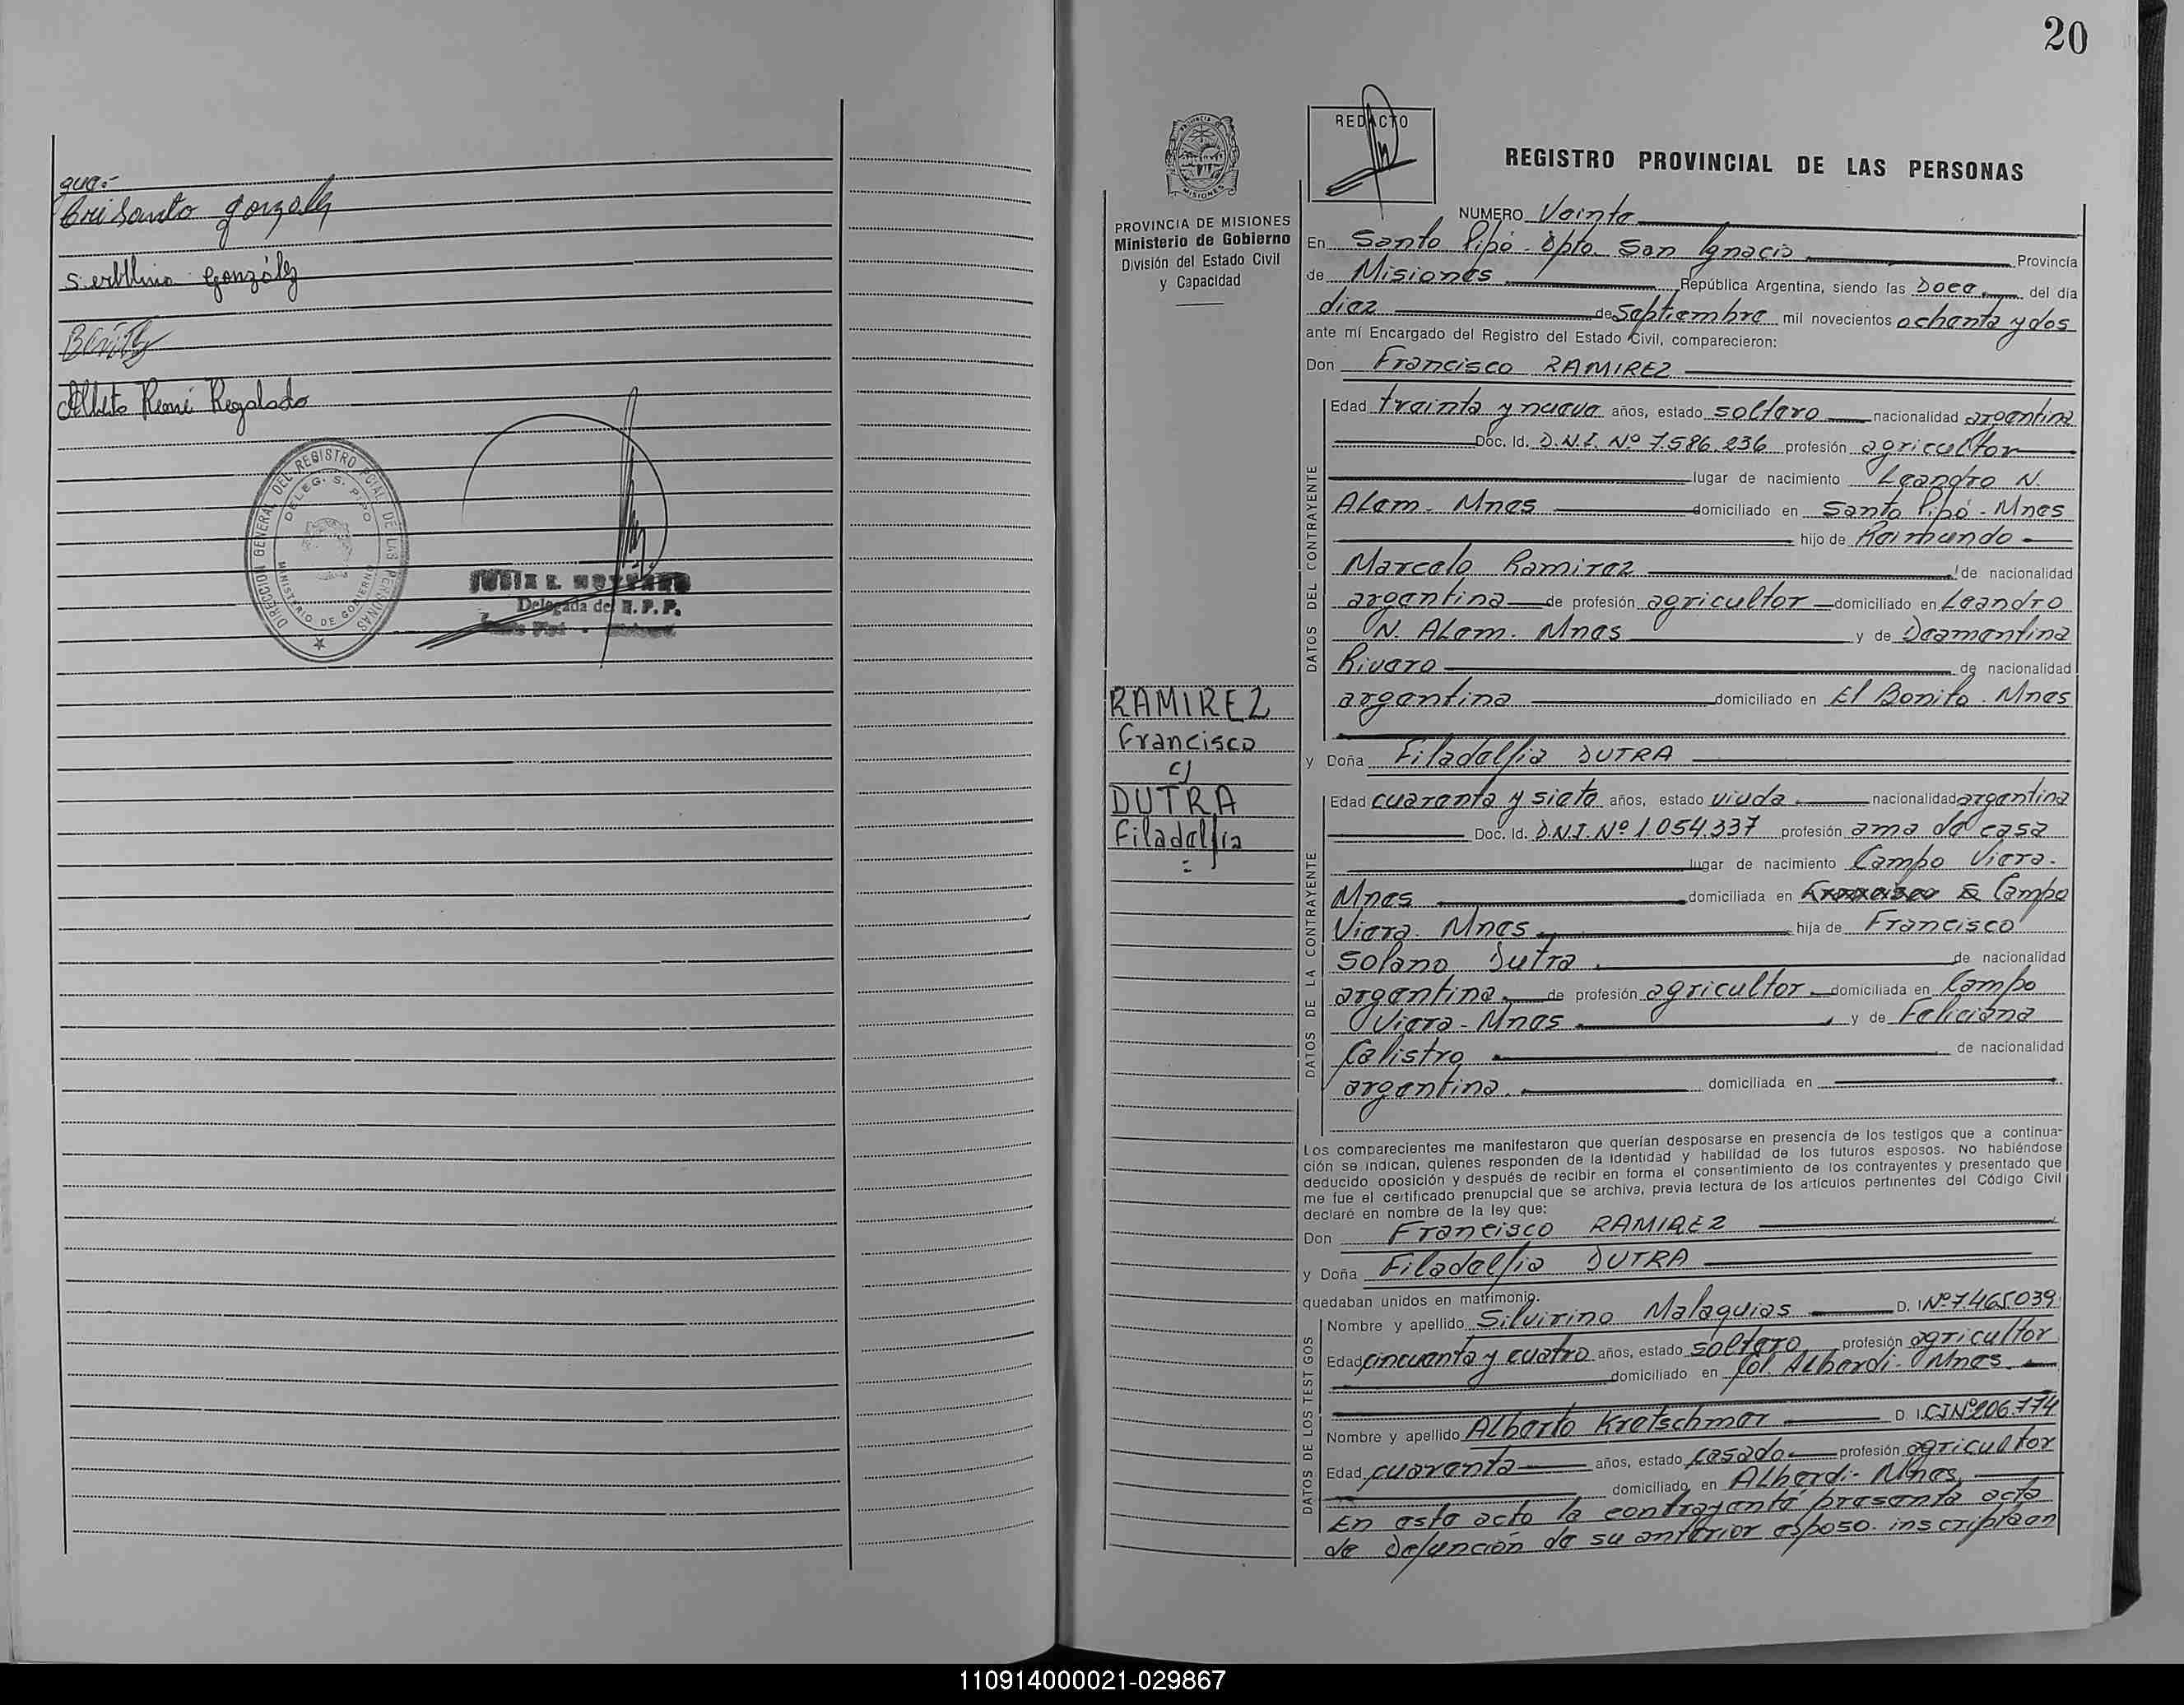 que.-
Crisanto Gonzalez
González
Benitez
Alberto René Regalado
DIRECCION GENERAL DEL REGISTRO PCIAL. DE LAS PERSONAS
DELEG. S. PIPO
MINISTERIO DE GOBIERNO
Delegada del R. P. P.
20
PROVINCIA DE MISIONES
Ministerio de Gobierno
División del Estado Civil
y Capacidad
RAMIREZ
Francisco
c/
DUTRA
Filadelfia
=
REDACTO
REGISTRO PROVINCIAL DE LAS PERSONAS
NUMERO Veinte
En Santo Pipó - Dpto. San Ignacio Provincia
de Misiones República Argentina, siendo las Doce del día
diez de Septiembre mil novecientos ochenta y dos
ante mí Encargado del Registro del Estado Civil, comparecieron:
Don Francisco RAMIREZ
DATOS DEL CONTRAYENTE
Edad treinta y nueve años, estado soltero nacionalidad argentina
Doc. Id. D.N.I. Nº 7.586.236 profesión agricultor
lugar de nacimiento Leandro N.
Alem - Mnes domiciliado en Santo Pipó - Mnes
hijo de Raimundo
Marcelo Ramirez de nacionalidad
argentina de profesión agricultor domiciliado en Leandro
N. Alem - Mnes y de Deamentina
Rivero de nacionalidad
argentina domiciliado en El Bonito - Mnes
y Doña Filadelfia DUTRA
DATOS DE LA CONTRAYENTE
Edad cuarenta y siete años, estado viuda. nacionalidad argentina
Doc. Id. D.N.I. Nº 1.054.337 profesión ama de casa
lugar de nacimiento Campo Viera -
Mnes domiciliada en Campo
Viera - Mnes hija de Francisco
Solano Dutra. de nacionalidad
argentina. de profesión agricultor domiciliada en Campo
Viera - Mnes y de Feliciana
Calistro de nacionalidad
argentina. domiciliada en
Los comparecientes me manifestaron que querían desposarse en presencia de los testigos que a continua-
ción se indican, quienes responden de la identidad y habilidad de los futuros esposos. No habiéndose
deducido oposición y después de recibir en forma el consentimiento de los contrayentes y presentado que
me fue el certificado prenupcial que se archiva, previa lectura de los artículos pertinentes del Código Civil
declaré en nombre de la ley que:
Don Francisco RAMIREZ
y Doña Filadelfia DUTRA
quedaban unidos en matrimonio.
DATOS DE LOS TESTIGOS
Nombre y apellido Silvirino Malaquias D. I. Nº 7.465.039
Edad cincuenta y cuatro años, estado soltero profesión agricultor
domiciliado en Col. Alberdi - Mnes.
Nombre y apellido Alberto Kretschmer D. I. CI Nº 206.774
Edad cuarenta años, estado casado profesión agricultor
domiciliado en Alberdi - Mnes.
En este acto la contrayente presenta acta
de defunción de su anterior esposo inscripta en
110914000021-029867